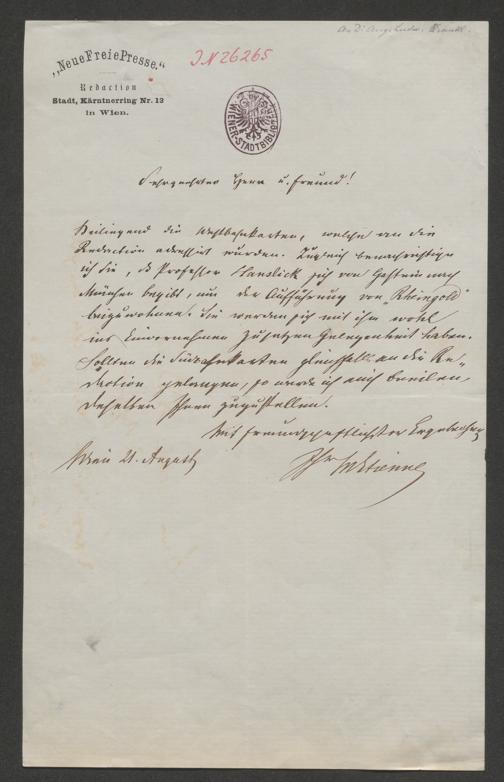 An Dr Aug. Ludw. Frankl.
„Neue Freie Presse.“
J.N 26265
Redaction
Stadt, Kärntnerring Nr. 12
in Wien.
WIENER-STADTBIBLIOTHEK
Sehrgeehrter Herr u. Freund!
Beiliegend die Westbahnkarten, welche an die
Redaction adressirt wurden. Zugleich benachrichtige
ich Sie, daß Professor Hanslick sich von Gastein nach
München begibt, um der Aufführung von „Rheingold“
beizuwohnen. Sie werden sich mit ihm wohl
ins Einvernehmen zu setzen Gelegenheit haben.
Sollten die Südbahnkarten gleichfalls an die Re-
daction gelangen, so werde ich mich beeilen,
dieselben Ihnen zuzustellen.
Mit freundschaftlichster Ergebenheit
Wien 21. August
Ihr MEtienne